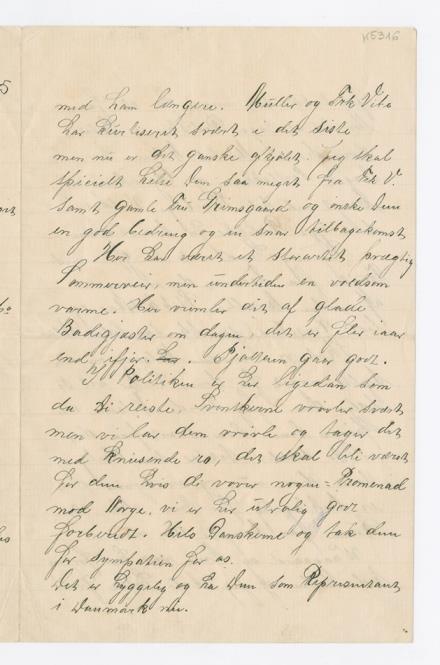 K5316
med ham længere. Müller og Frk Vibe
har kurtiseret svært i det siste
men nu er det ganske afkjølet. Jeg skal
specielt helse Dem saa meget fra Frk V.
samt gamle Fru Grimsgaard og ønske Dem
en god bedring og en snar tilbagekomst
Her har været et storartet prægtig
Sommerveir, men undertiden en voldsom
varme. Her vrimler det af glade
Badegjæster om dagen, det er fler iaar
end ifjor. Bjaltum gaar godt.
Politiken er her ligedan som
da Di reiste. Svenskerne vrøvler svært
men vi lar dem vrøvle og tager det
med knusende ro, det skal bli værst
for dem hvis de vover nogen Promenad
mod Norge, vi er her utrolig godt
forberedt. Hils Danskerne og tak dem
for sympatien for os.
Det er hyggelig og ha Dem som Repræsentant
i Danmark nu.